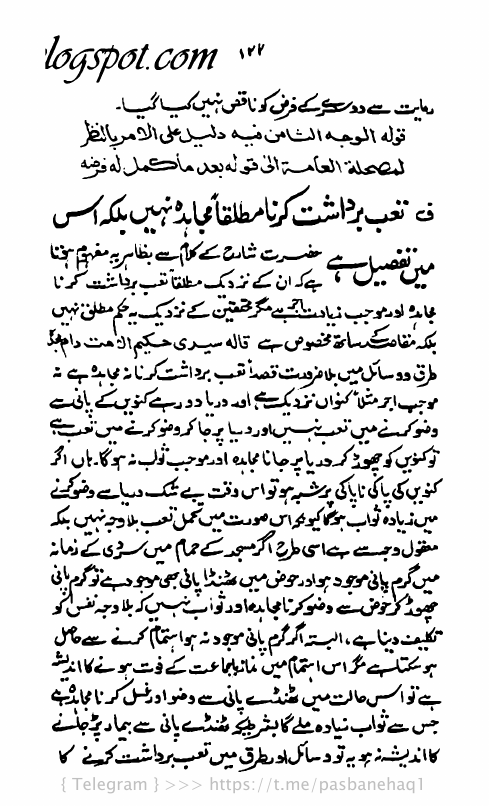 logspot.com ۱۲۲
رعایت سے دوسرے کے فرض کو ناقص نہیں کیا گیا۔
قوله الوجه الثامن فیه دلیل علی الامر بالنظر
لمصلحة العامة الی قوله بعد ما کمل له فرضه
ف تعب برداشت کرنا مطلقاً مجاہدہ نہیں بلکہ اس
میں تفصیل ہے حضرت شارح کے کلام سے بظاہر یہ مفہوم ہوتا
ہے کہ ان کے نزدیک مطلقاً تعب برداشت کرنا
مجاہدہ اور موجب زیادت اجر ہے مگر محققین کے نزدیک یہ حکم مطلق نہیں
بلکہ مقاصد کے ساتھ مخصوص ہے قاله سیدی حکیم الامت دام مجدہ
طرق و وسائل میں بلا ضرورت قصداً تعب برداشت کرنا نہ مجاہدہ ہے نہ
موجب اجر مثلاً کنواں نزدیک ہے اور دریا دور ہے کنویں کے پانی سے
وضو کرنے میں تعب نہیں اور دریا پر جا کر وضو کرنے میں تعب ہے
تو کنویں کو چھوڑ کر دریا پر جانا مجاہدہ اور موجب ثواب نہ ہوگا۔ ہاں اگر
کنویں کی پاکی ناپاکی پر شبہ ہو تو اس وقت بے شک دریا سے وضو کرنے
میں زیادہ ثواب ہوگا کیونکہ اس صورت میں تحمل تعب بلا وجہ نہیں بلکہ
معقول وجہ سے ہے اسی طرح اگر مسجد کے حمام میں سردی کے زمانہ
میں گرم پانی موجود ہو اور حوض میں ٹھنڈا پانی بھی موجود ہے تو گرم پانی
چھوڑ کر حوض سے وضو کرنا مجاہدہ اور ثواب نہیں کہ بلا وجہ نفس کو
تکلیف دینا ہے، البتہ اگر گرم پانی موجود نہ ہو اہتمام کرنے سے حاصل
ہو سکتا ہے مگر اس اہتمام میں نماز باجماعت کے فوت ہونے کا اندیشہ
ہے تو اس حالت میں ٹھنڈے پانی سے وضو اور غسل کرنا مجاہدہ ہے
جس سے ثواب زیادہ ملے گا بشرطیکہ ٹھنڈے پانی سے بیمار پڑ جانے
کا اندیشہ نہ ہو یہ تو وسائل اور طرق میں تعب برداشت کرنے کا
{ Telegram } >>> https://t.me/pasbanehaq1